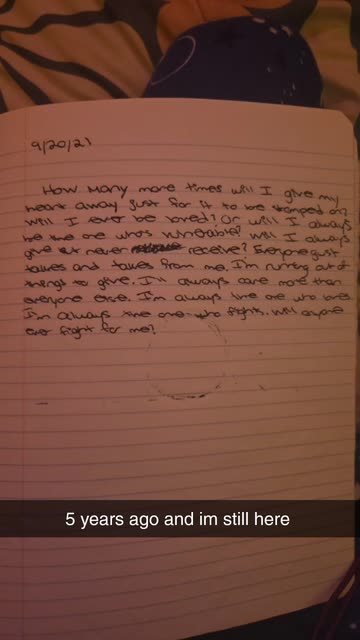 9/20/21
How many more times will I give my
heart away just for it to be stomped on?
Will I ever be loved? Or will I always
be the one who's vulnerable? Will I always
give but never receive? Everyone just
takes and takes from me. I'm running out of
things to give. I'll always care more than
everyone else. I'm always the one who loves
I'm always the one who fights. Will anyone
ever fight for me?
5 years ago and im still here